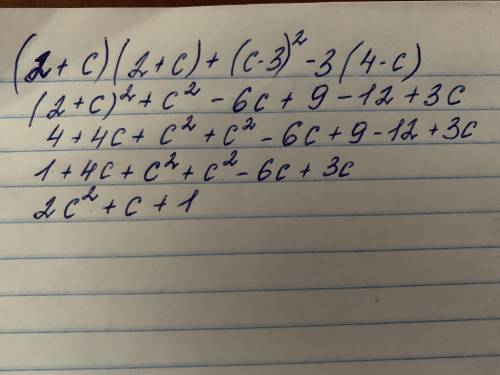 (2+c)(2+c)+(c-3)²-3(4-c)
(2+c)²+c²-6c+9-12+3c
4+4c+c²+c²-6c+9-12+3c
1+4c+c²+c²-6c+3c
2c²+c+1